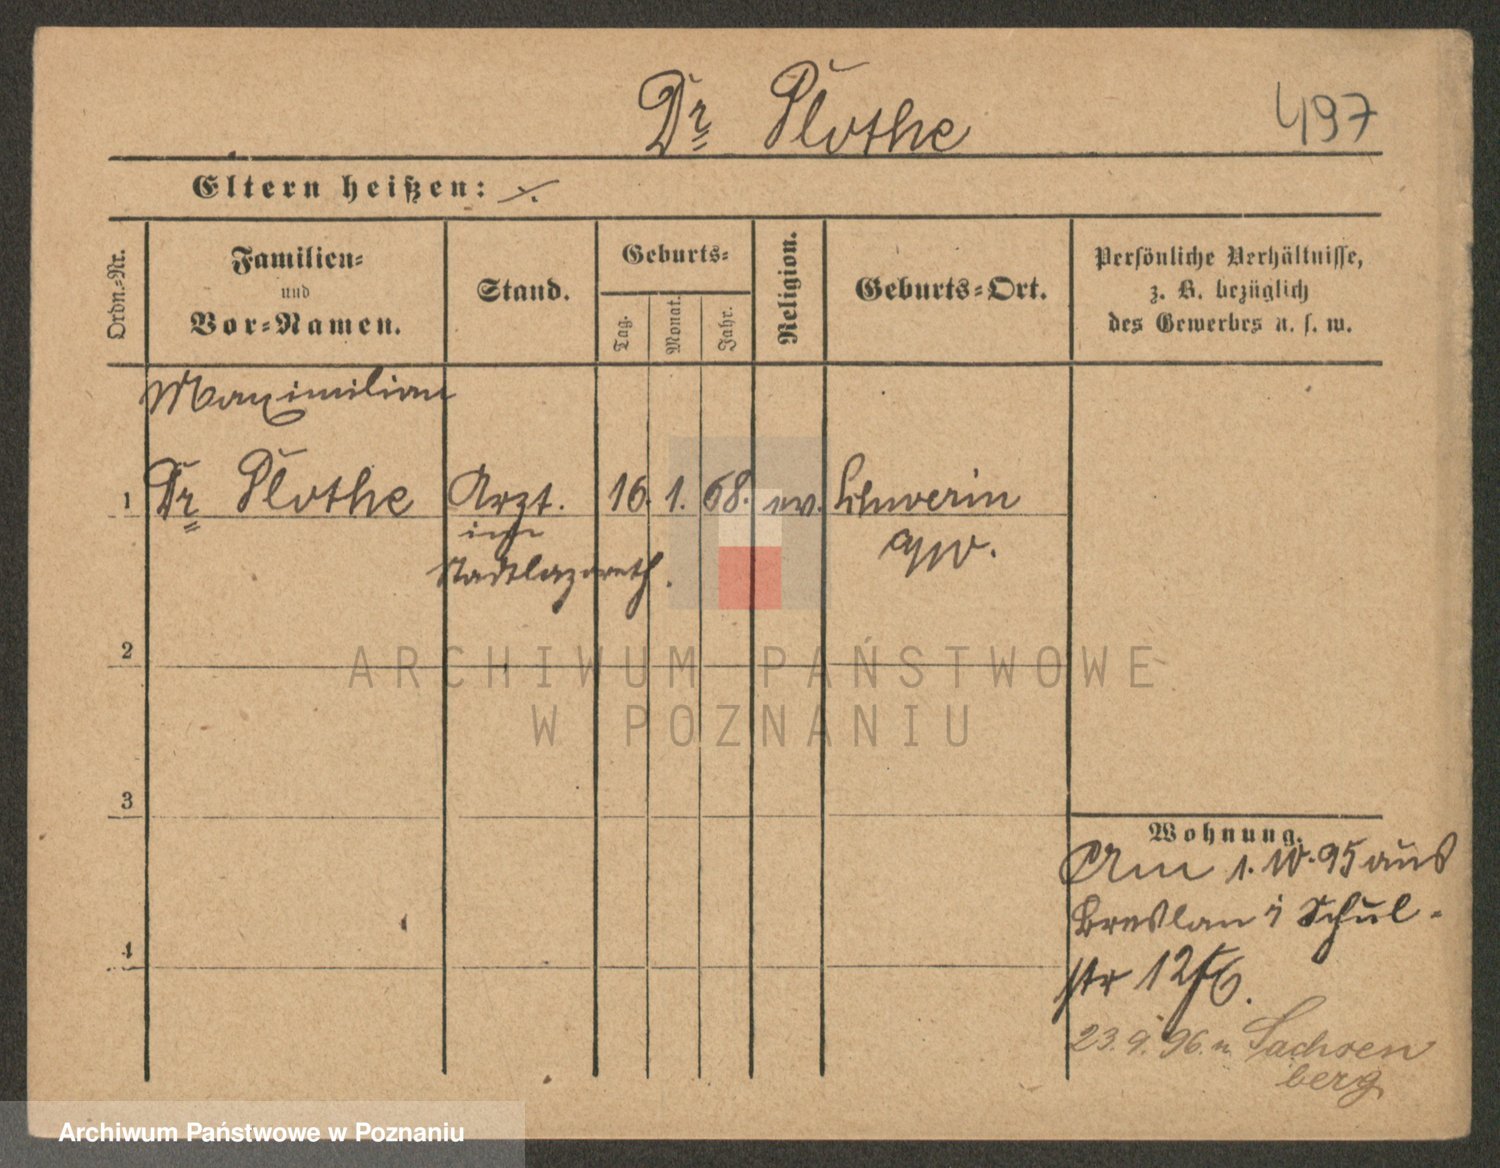 Dr Plothe
497
Eltern heißen: ⁒
Ordn.-Nr.
Familien-
und
Vor-Namen.
Stand.
Geburts-
Tag.
Monat.
Jahr.
Religion.
Geburts-Ort.
Persönliche Verhältnisse,
z. B. bezüglich
des Gewerbes u. s. w.
Maximilian
1 Dr Plothe Arzt. 16. 1. 68. ev. Schwerin
a/W.
Stadtlazareth.
ARCHIWUM PAŃSTWOWE
W POZNANIU
2
3
4
Wohnung.
Am 1. 10. 95 aus
Breslau Schul-
str 12
23. 9. 96. n. Sachsen
berg
Archiwum Państwowe w Poznaniu